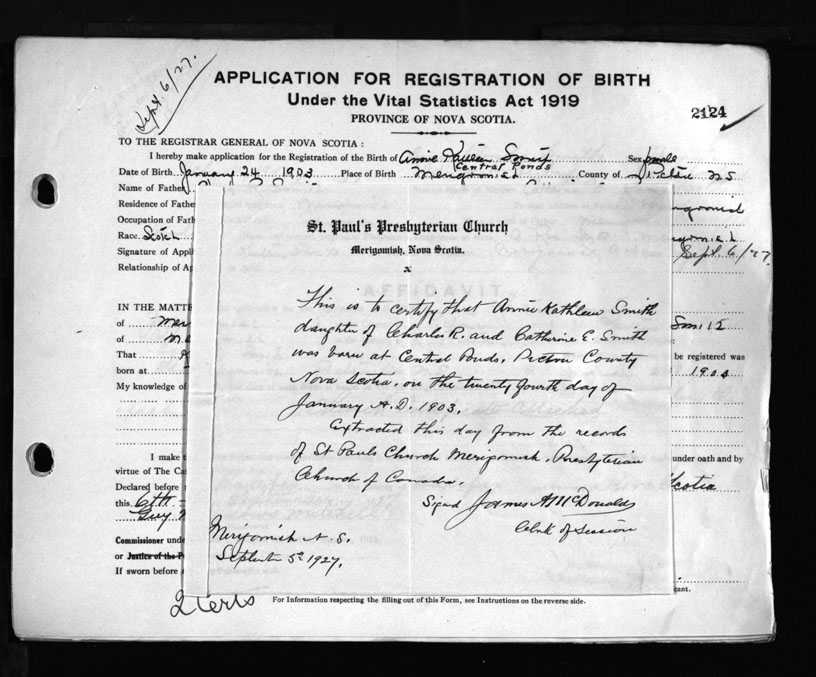 Sept. 6/27.
APPLICATION FOR REGISTRATION OF BIRTH
Under the Vital Statistics Act 1919
PROVINCE OF NOVA SCOTIA.
2124
TO THE REGISTRAR GENERAL OF NOVA SCOTIA :
I hereby make application for the Registration of the Birth of Annie Smith Sex female
Central Ponds
Date of Birth January 24 1903 Place of Birth Merigomish County of Pictou N S
Name of Father
Residence of Fathe Merigomish
Occupation of Fath
Race Scotch
Signature of Appli Sept. 6/27.
Relationship of Ap
St. Paul's Presbyterian Church
Merigomish, Nova Scotia.
x
AFFIDAVIT
This is to certify that Annie Kathleen Smith
daughter of Charles R. and Catherine E. Smith
was born at Central Ponds, Pictou County
Nova Scotia, on the twenty fourth day of
January A.D. 1903.
Extracted this day from the records
of St Pauls Church Merigomish, Presbyterian
Church of Canada.
Signed James A McDonald
Clerk of Session
Merigomish N.S.
September 5th 1927.
IN THE MATTE
of Mer
of
That be registered was
born at 1903
My knowledge of
I make under oath and by
virtue of The Ca
Declared before Scotia
this 6th
Guy
Commissioner unde
or Justice of the P
If sworn before cant.
For Information respecting the filling out of this Form, see Instructions on the reverse side.
2 Certs